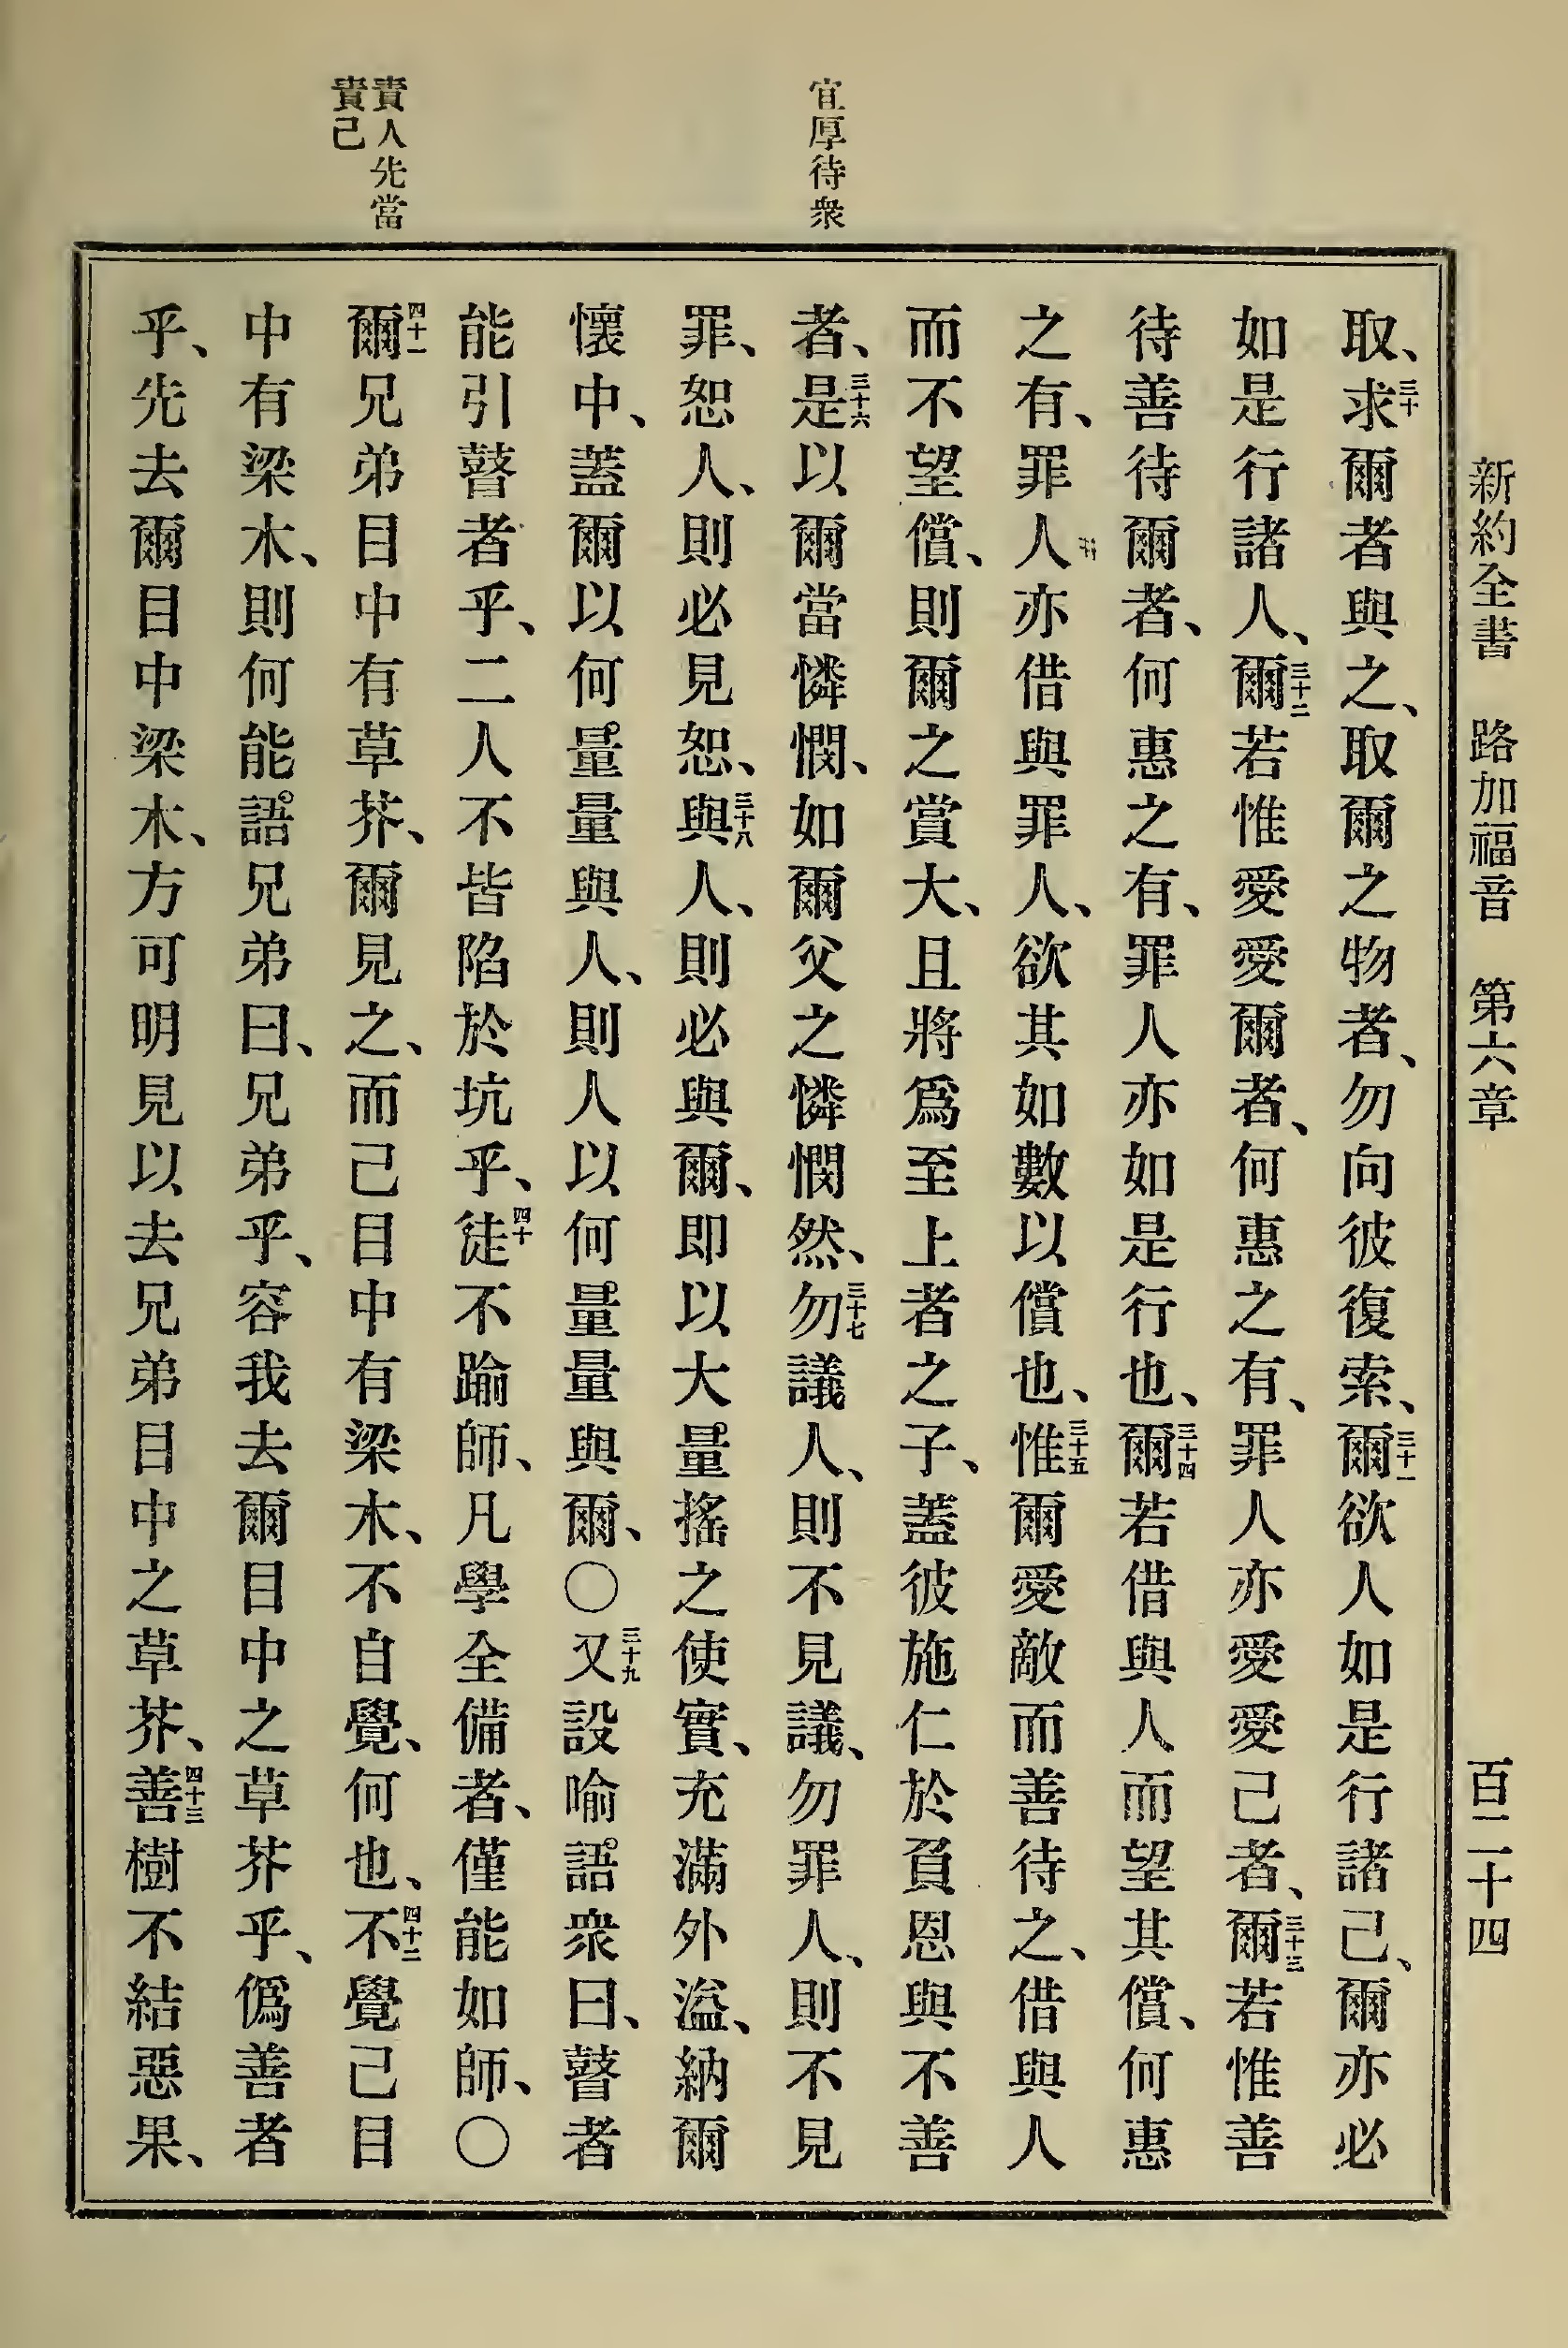 新約全書 路加福音 第六章 百二十四
宜厚待衆
責人先當
責己
取、三十求爾者與之、取爾之物者、勿向彼復索、三十一爾欲人如是行諸己、爾亦必
如是行諸人、三十二爾若惟愛愛爾者、何惠之有、罪人亦愛愛己者、三十三爾若惟善
待善待爾者、何惠之有、罪人亦如是行也、三十四爾若借與人而望其償、何惠
之有、罪人亦借與罪人、欲其如數以償也、三十五惟爾愛敵而善待之、借與人
而不望償、則爾之賞大、且將爲至上者之子、蓋彼施仁於負恩與不善
者、三十六是以爾當憐憫、如爾父之憐憫然、三十七勿議人、則不見議、勿罪人、則不見
罪、恕人、則必見恕、三十八與人、則必與爾、即以大量搖之使實、充滿外溢、納爾
懷中、蓋爾以何量量與人、則人以何量量與爾、〇三十九又設喻語衆曰、瞽者
能引瞽者乎、二人不皆陷於坑乎、四十徒不踰師、凡學全備者、僅能如師、〇
四十一爾兄弟目中有草芥、爾見之、而己目中有梁木、不自覺、何也、四十二不覺己目
中有梁木、則何能語兄弟曰、兄弟乎、容我去爾目中之草芥乎、僞善者
乎、先去爾目中梁木、方可明見以去兄弟目中之草芥、四十三善樹不結惡果、